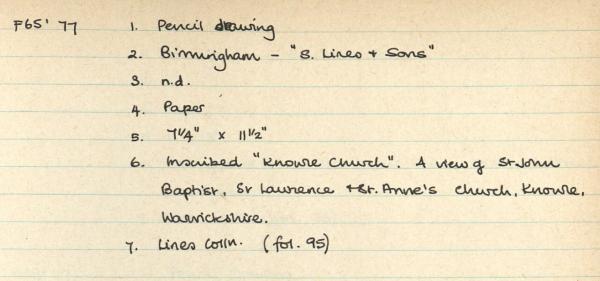 F65' 77 1. Pencil drawing
2. Birmingham - "S. Lines + Sons"
3. n.d.
4. Paper
5. 7 1/4" x 11 1/2"
6. Inscribed "Knowle Church". A view of St John
Baptist, St Laurence + St. Anne's church, Knowle,
Warwickshire.
7. Lines Colln. (fol. 95)